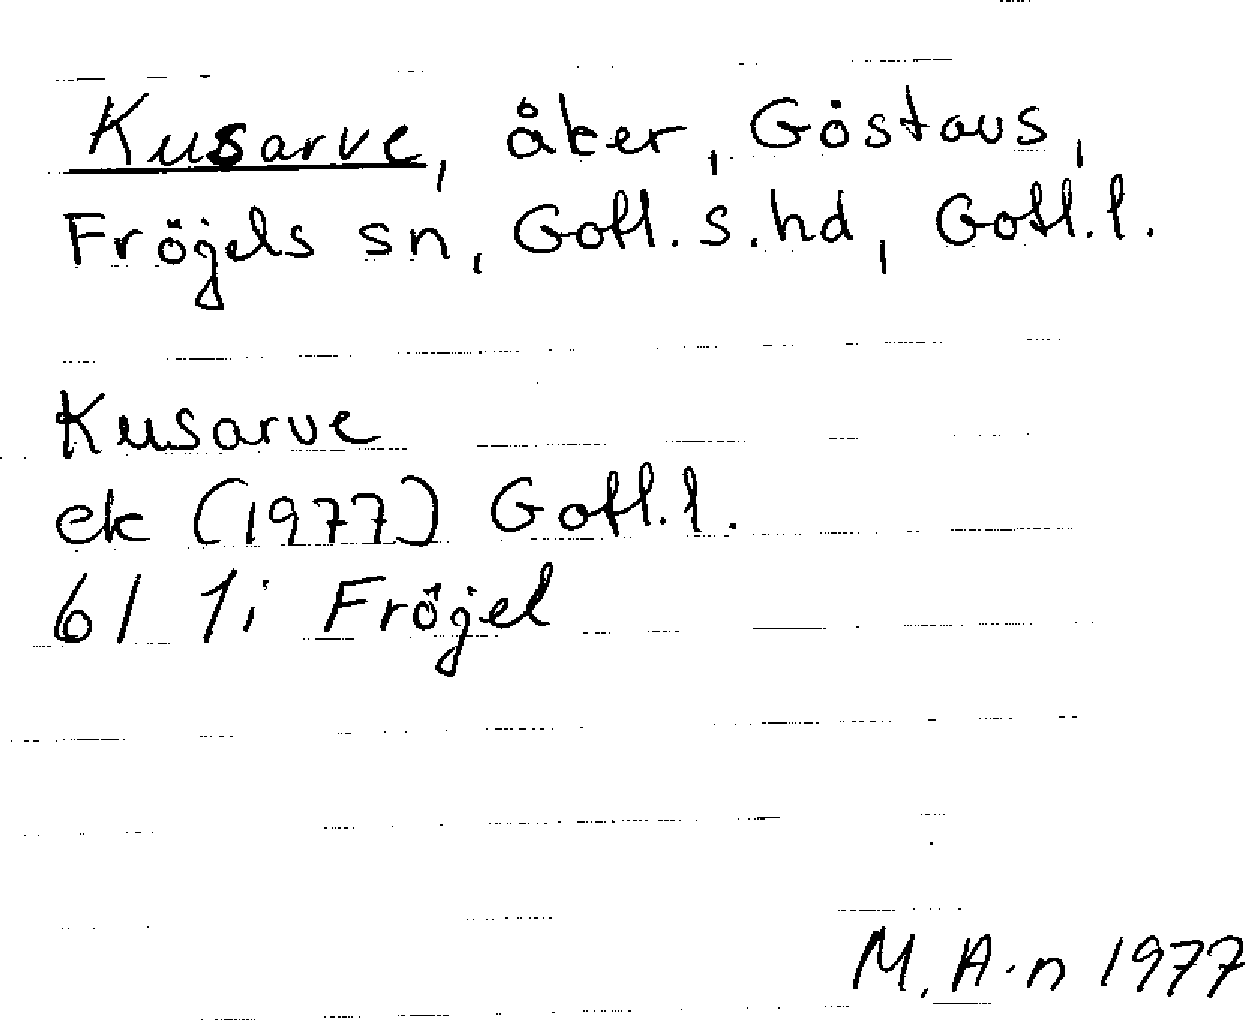 Kusarve, åker, Göstavs,
Fröjels sn, Gotl. s. hd, Gotl. l.
Kusarve
ek (1977) Gotl. l.
6I 1i Fröjel
M. A-n 1977